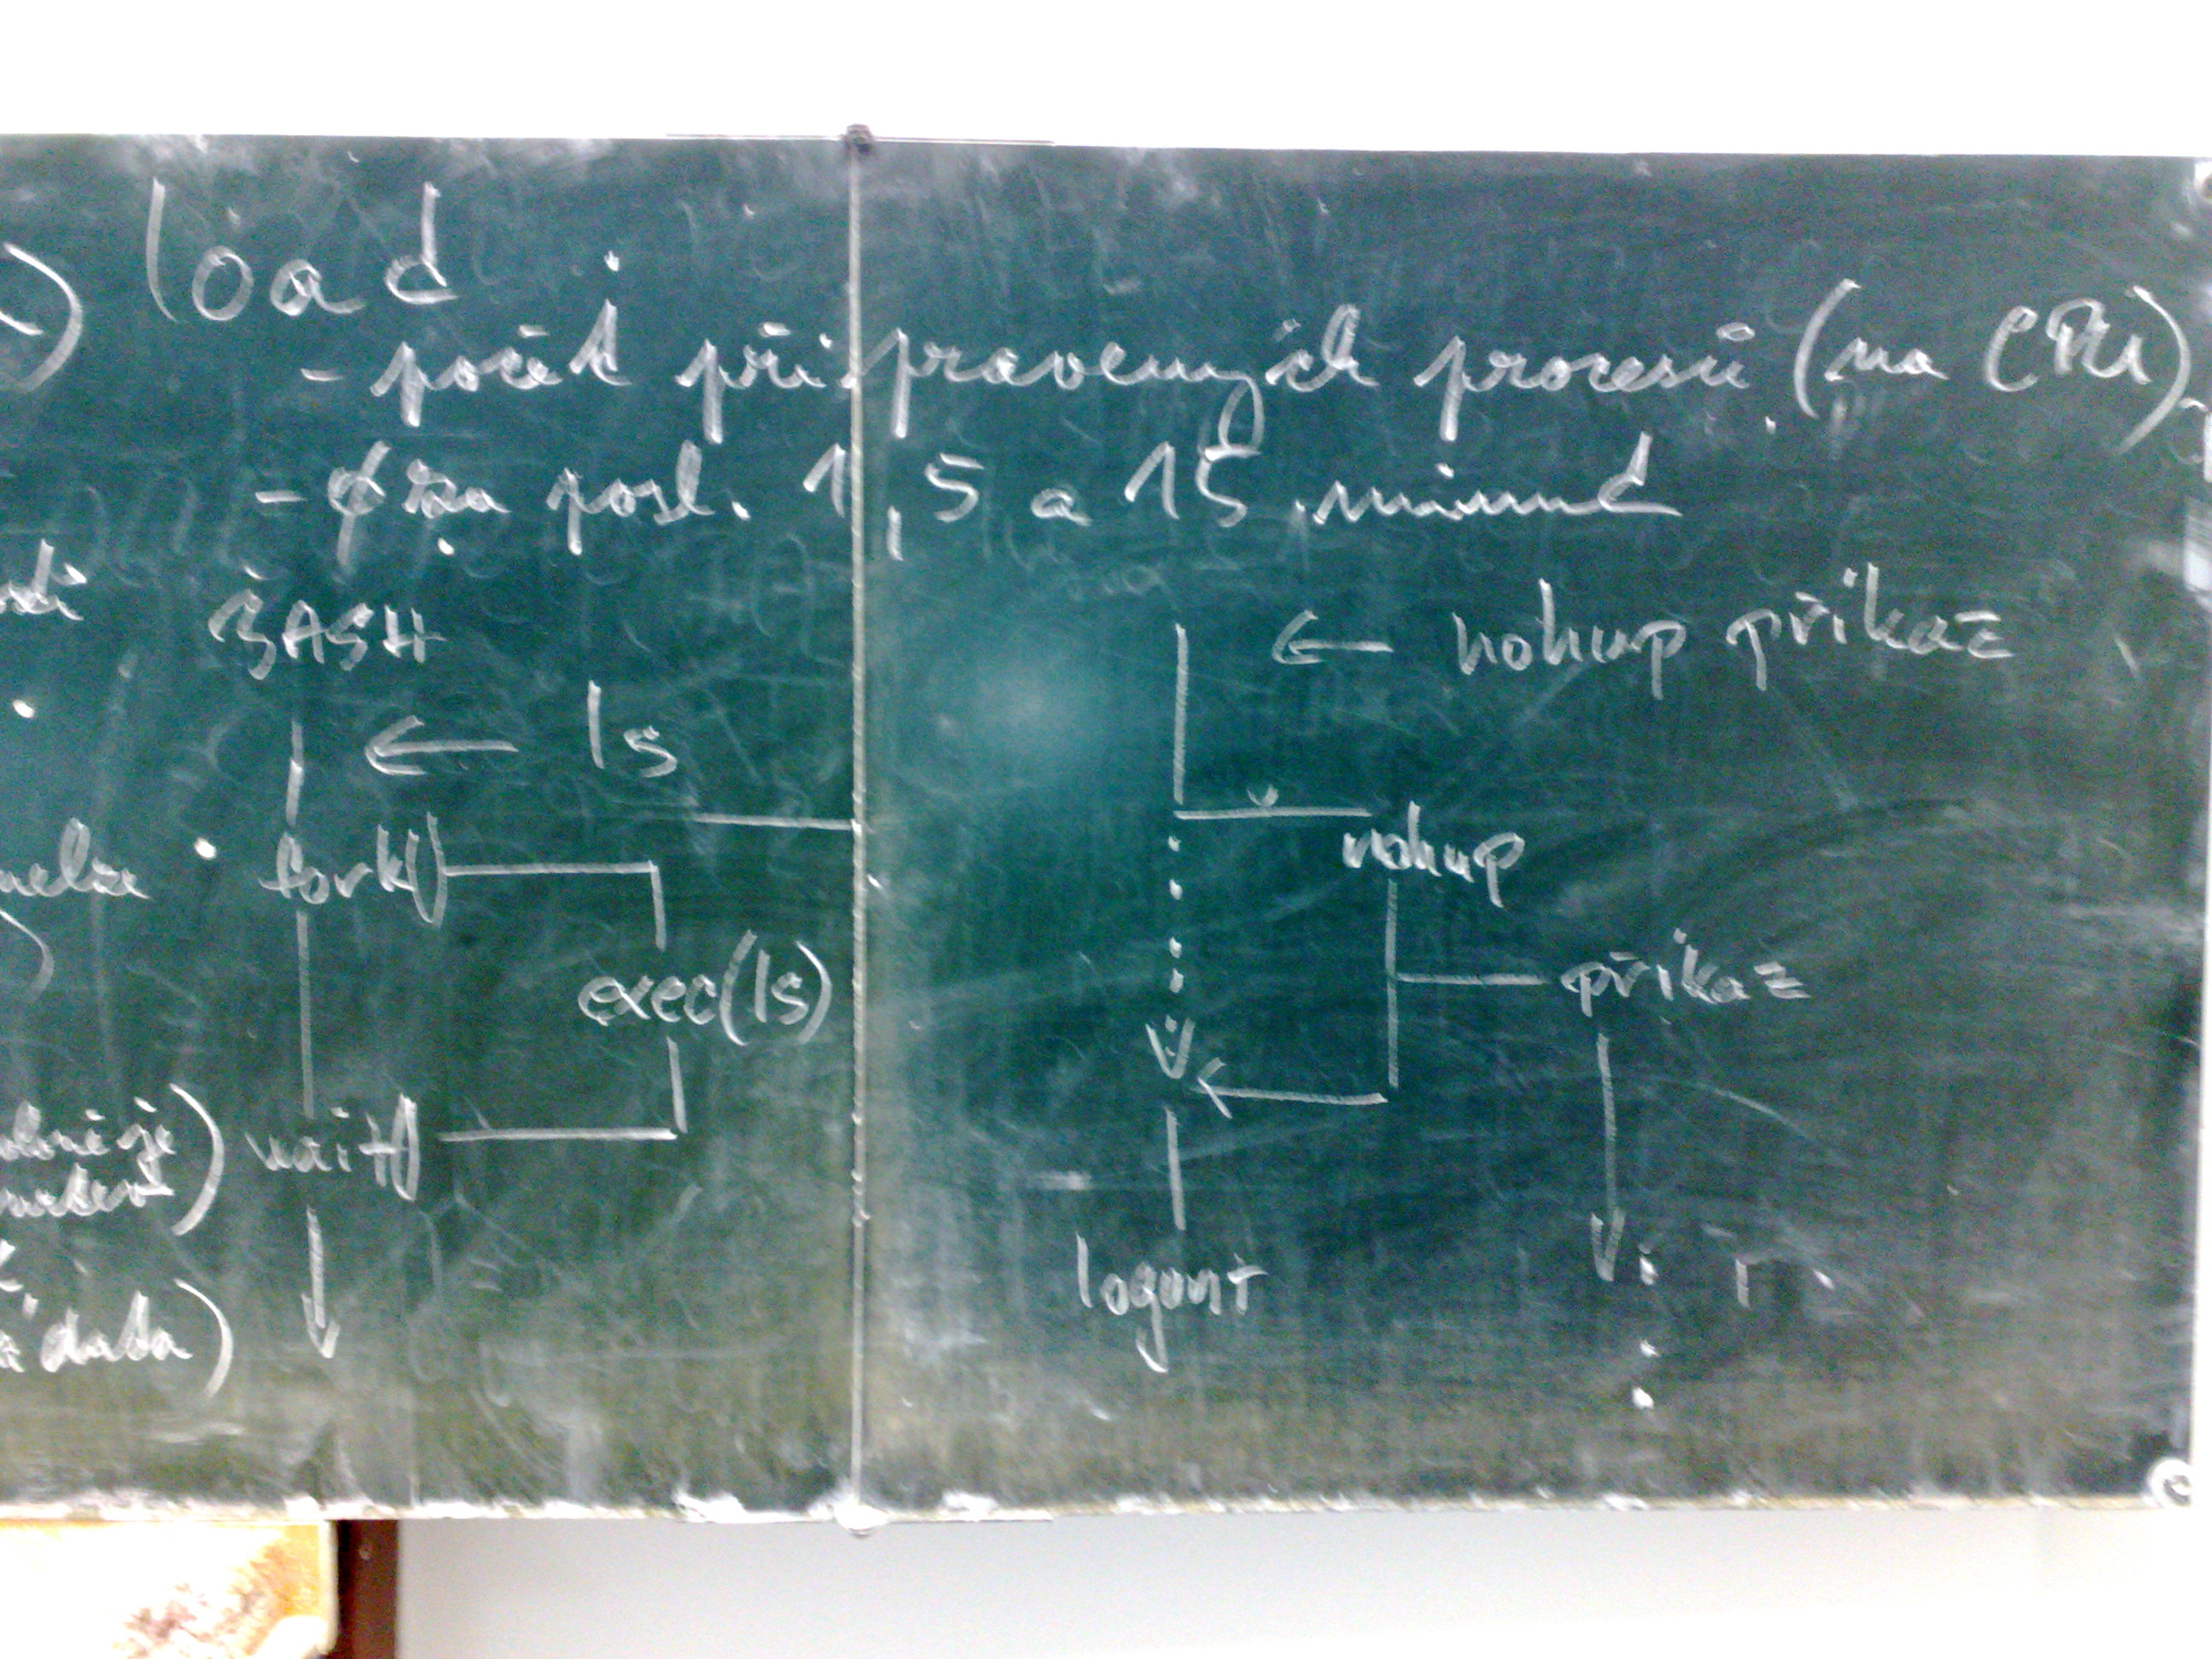 load
- počet připravených procesů (na CPU)
- ϕ za posl. 1, 5 a 15 minut
BASH
← ls
fork()
exec(ls)
wait()
← nohup příkaz
nohup
příkaz
logout
data)